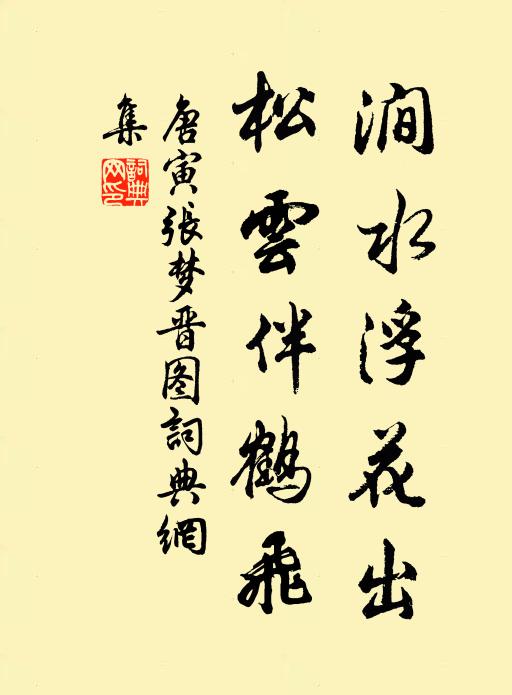 澗水浮花出
松雲伴鶴飛
唐寅張梦晋图詞典網
集
詞典
网印